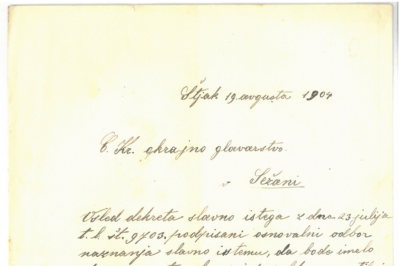 Štjak 19. avgusta 1904
C. Kr. okrajno glavarstvo
v Sežani
Vsled dekreta slavno istega z dne 23. julija
t. l. št. 9703. podpisani osnovalni odbor
naznanja slavno istemu, da bode imelo